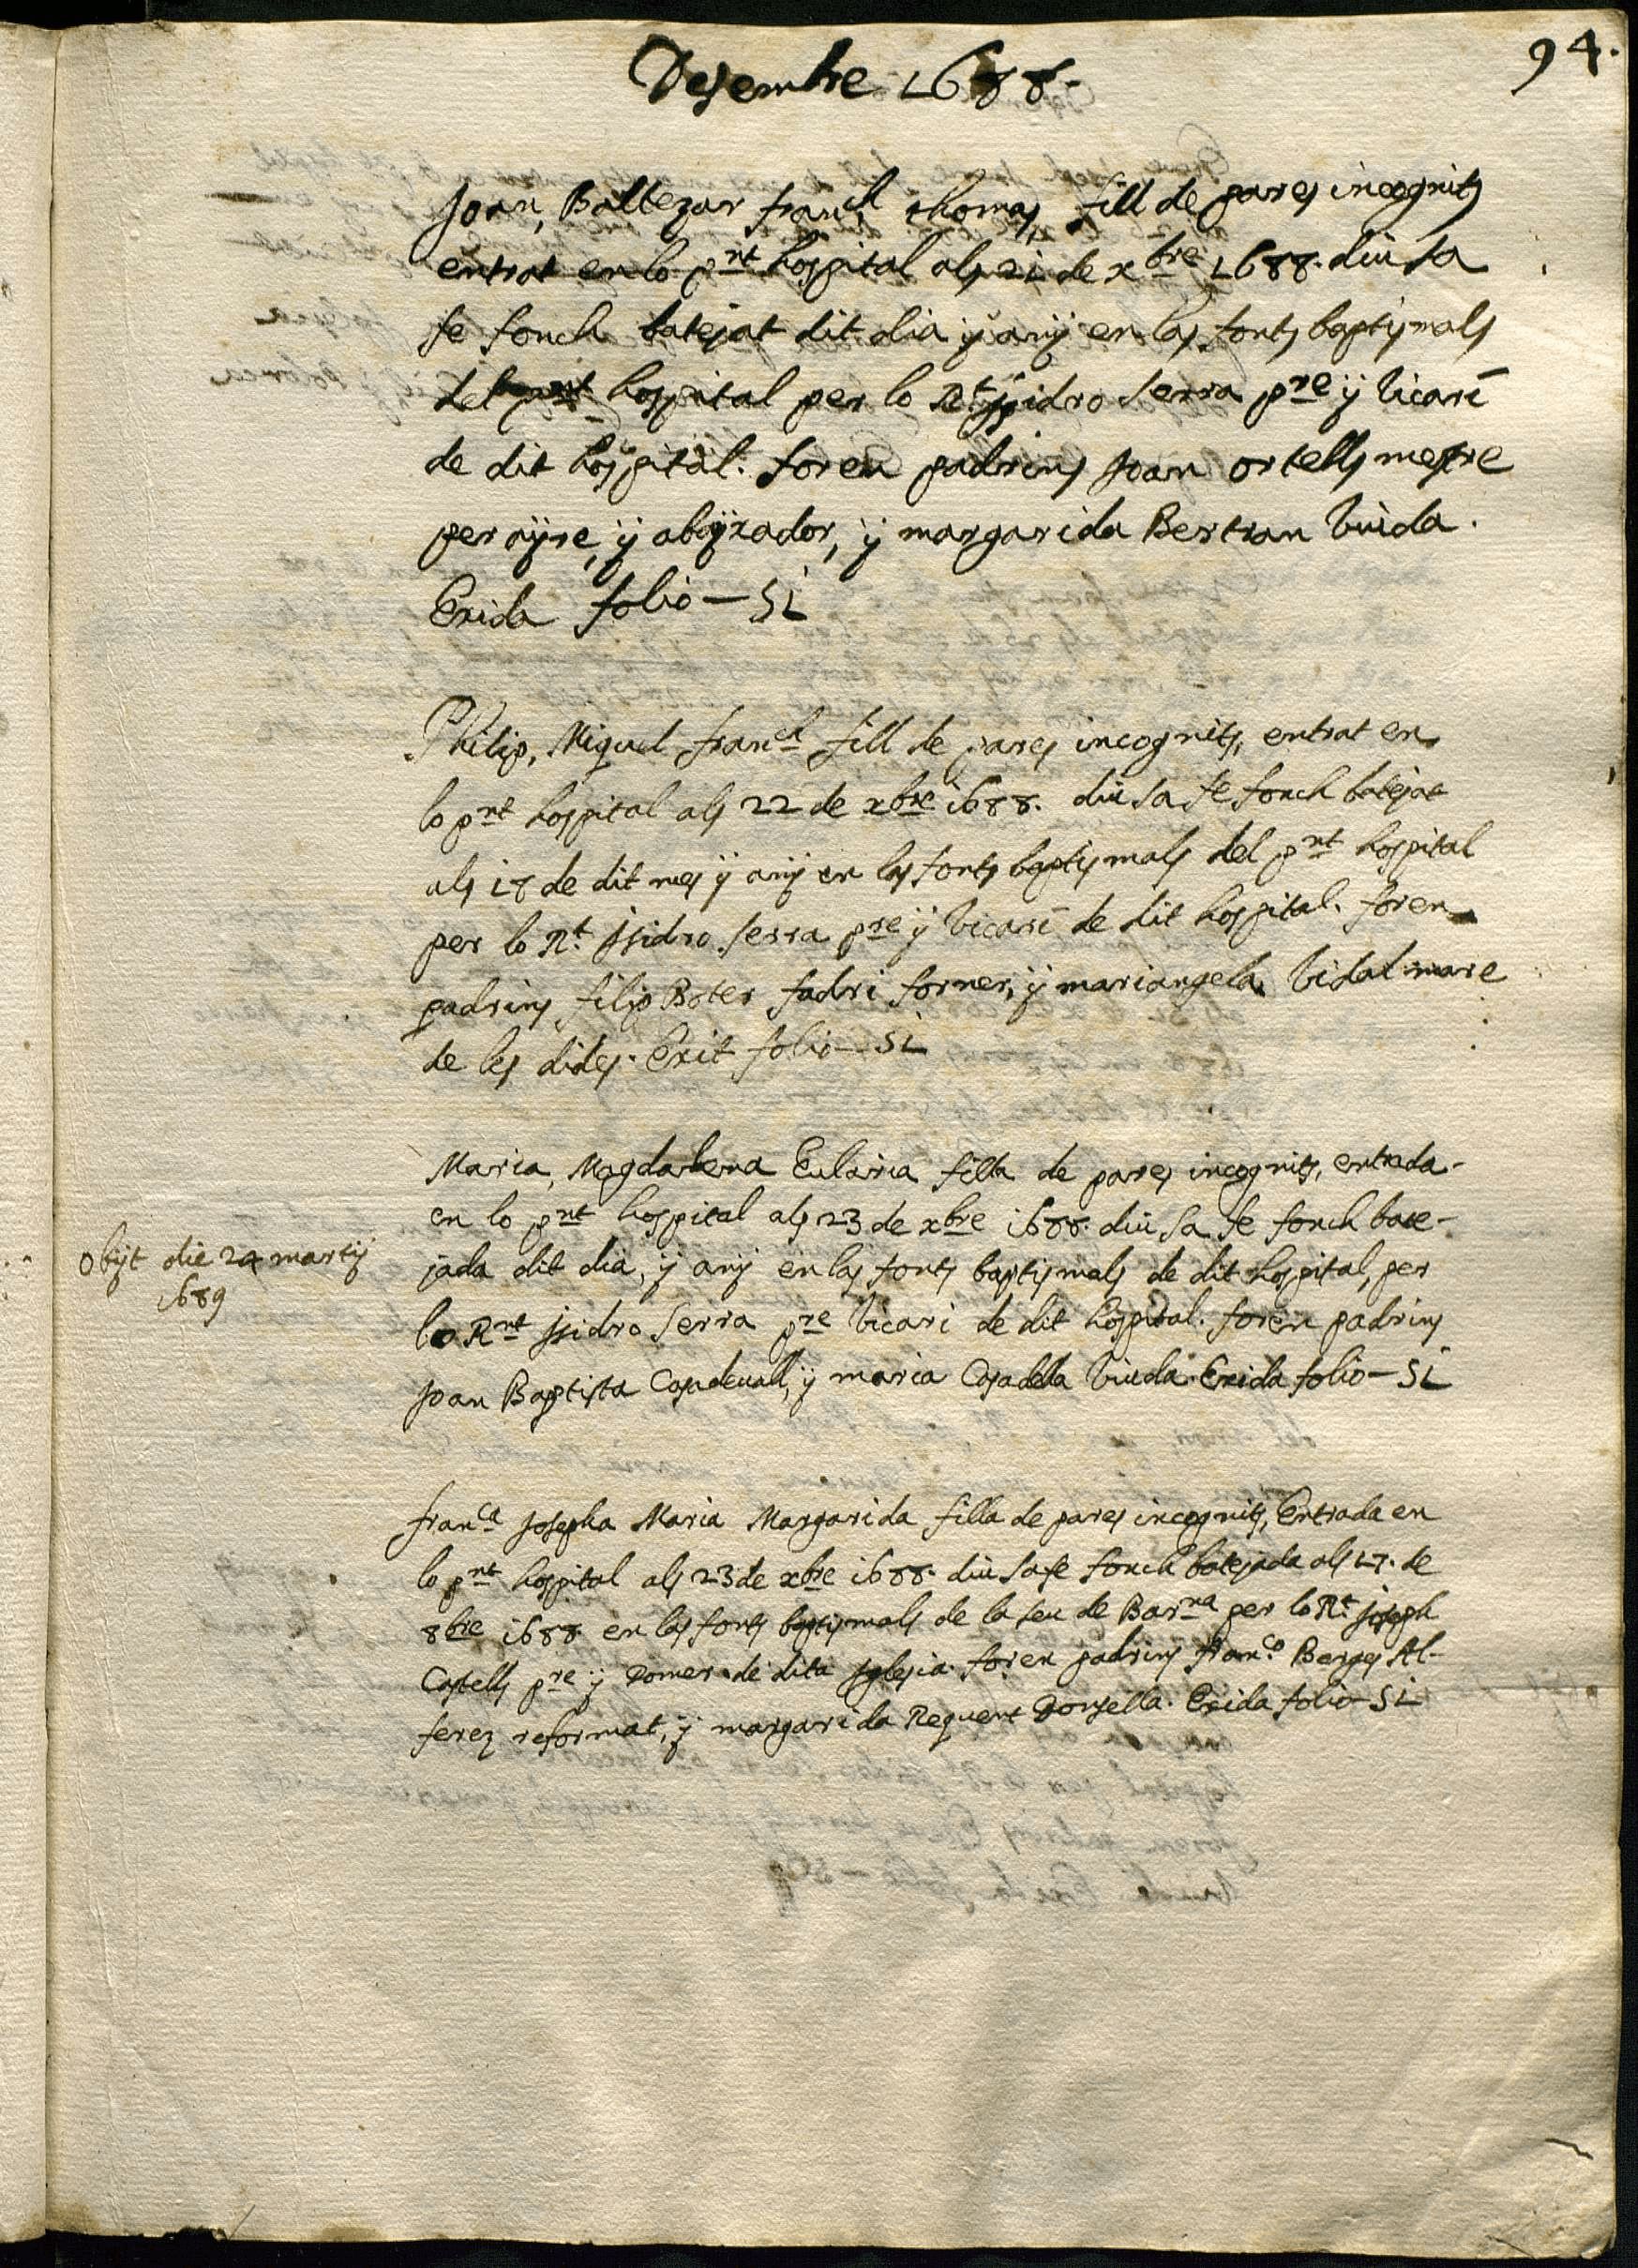 94.
Desembre 1688.
Joan, Baltezar franch thomas, fill de pares incognits
entrat en lo pnt hospital als 21 de xbre 1688. diu sa
fe fonch batejat dit dia ÿ anÿ en las fonts baptismals
del pnt hospital per lo Rt Isidro Serra pre ÿ Vicari
de dit hospital. foren padrins Joan ortells mestre
perayre, ÿ abayxador, ÿ margarida Bertran Viuda.
Exida folio — 51
Philip, Miquel franch fill de pares incognits, entrat en
lo pnt hospital als 22 de xbre 1688. diu sa fe fonch batejat
als 17 de dit mes ÿ anÿ en las fonts baptismals del pnt hospital
per lo Rt. Isidro Serra pre ÿ Vicari de dit hospital. foren
padrins filip Boter fadri forner, ÿ mariangela Vidal mare
de les dides. Exit folio — 51
Maria, Magdalena Eularia filla de pares incognits, entrada
en lo pnt hospital als 23 de xbre 1688. diu sa fe fonch bate-
jada dit dia, ÿ anÿ en las fonts baptismals de dit hospital, per
lo Rnt Isidro Serra pre Vicari de dit hospital. foren padrins
Joan Baptista Casadevall, ÿ maria Casadella Viuda. Exida folio — 51
Obijt die 24 martij
1689
franca Josepha Maria Margarida filla de pares incognits, Entrada en
lo pnt hospital als 23 de xbre 1688. diu sa fe fonch batejada als 17. de
8bre 1688 en las fonts baptismals de la seu de Barna per lo Rt. Joseph
Castells pre ÿ Domer de dita Iglesia. foren padrins franco. Berges Al-
ferez reformat, ÿ margarida Requert Donsella. Exida folio — 51